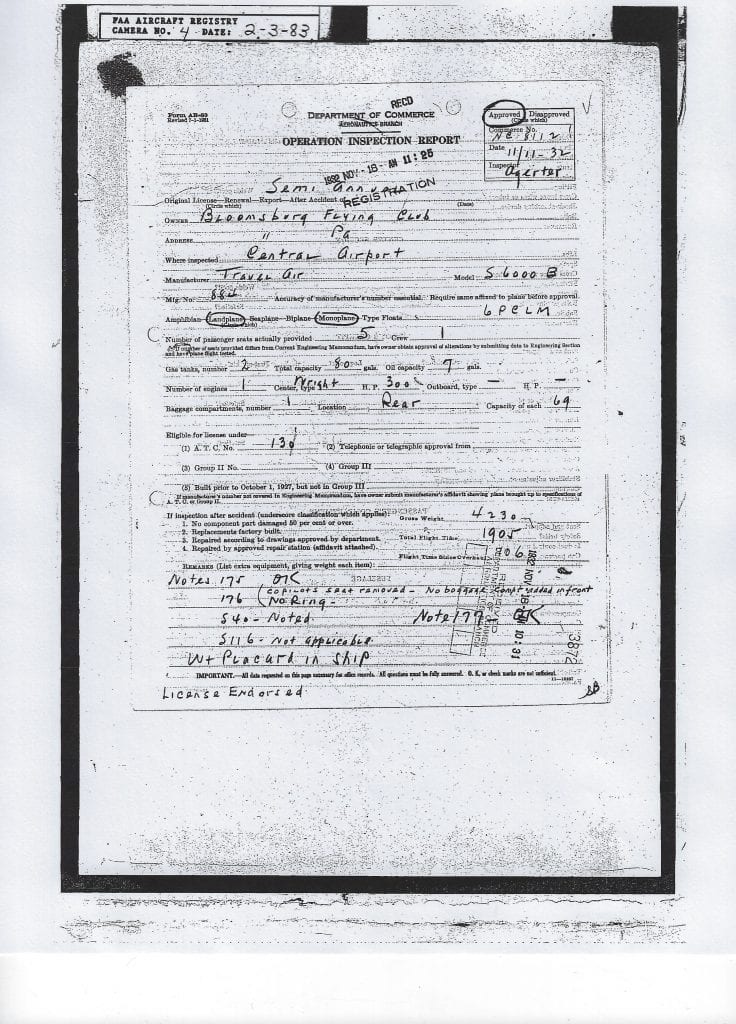 FAA AIRCRAFT REGISTRY
CAMERA NO. 4 DATE: 2-3-83
RECD
Form AB-
Revised 7-1-1931
DEPARTMENT OF COMMERCE
AERONAUTICS BRANCH
OPERATION INSPECTION REPORT
Approved Disapproved
(Circle which)
Commerce No.
NC-8112
Date 11/11-32
Inspector Agerter
1932 NOV -18- AM 11:25
REGISTRATION
Semi Annual
Original License—Renewal—Export—After Accident of
(Circle which) (Date)
OWNER Bloomsburg Flying Club
ADDRESS " Pa
Where inspected Central Airport
Manufacturer Travel Air Model S 6000 B
Mfg. No. 884 Accuracy of manufacturer's number essential. Require same affixed to plane before approval.
6 PCLM
Amphibian Landplane Seaplane—Biplane Monoplane Type Floats
(Circle which)
Number of passenger seats actually provided 5 Crew 1
If number of seats provided differs from Current Engineering Memorandum, have owner obtain approval of alterations by submitting data to Engineering Section
and have plane flight tested.
Gas tanks, number 2 Total capacity 80 gals. Oil capacity 7 gals.
Number of engines 1 Center, type Wright H. P. 300 Outboard, type — H. P. —
Baggage compartments, number 1 Location Rear Capacity of each 69
Eligible for license under—
(1) A. T. C. No. 130 (2) Telephonic or telegraphic approval from
(3) Group II No. (4) Group III
(5) Built prior to October 1, 1927, but not in Group III
If manufacturer's number not covered in Engineering Memorandum, have owner submit manufacturer's affidavit showing plane brought up to specifications of
A. T. C. or Group II.
If inspection after accident (underscore classification which applies):
1. No component part damaged 50 per cent or over.
2. Replacements factory built.
3. Repaired according to drawings approved by department.
4. Repaired by approved repair station (affidavit attached).
Gross Weight 4230
Total Flight Time 1905
Flight Time Since Overhaul 106
REMARKS (List extra equipment, giving weight each item):
Notes 175 OK
176 (copilots seat removed - No baggage compt added in front
No Ring -
S40 - Noted Note 177 OK
S116 - Not applicable
Wt Placard in ship
1932 NOV 18 AM 10 31
3872
IMPORTANT.—All data requested on this page necessary for office records. All questions must be fully answered. O. K. or check marks are not sufficient.
License Endorsed